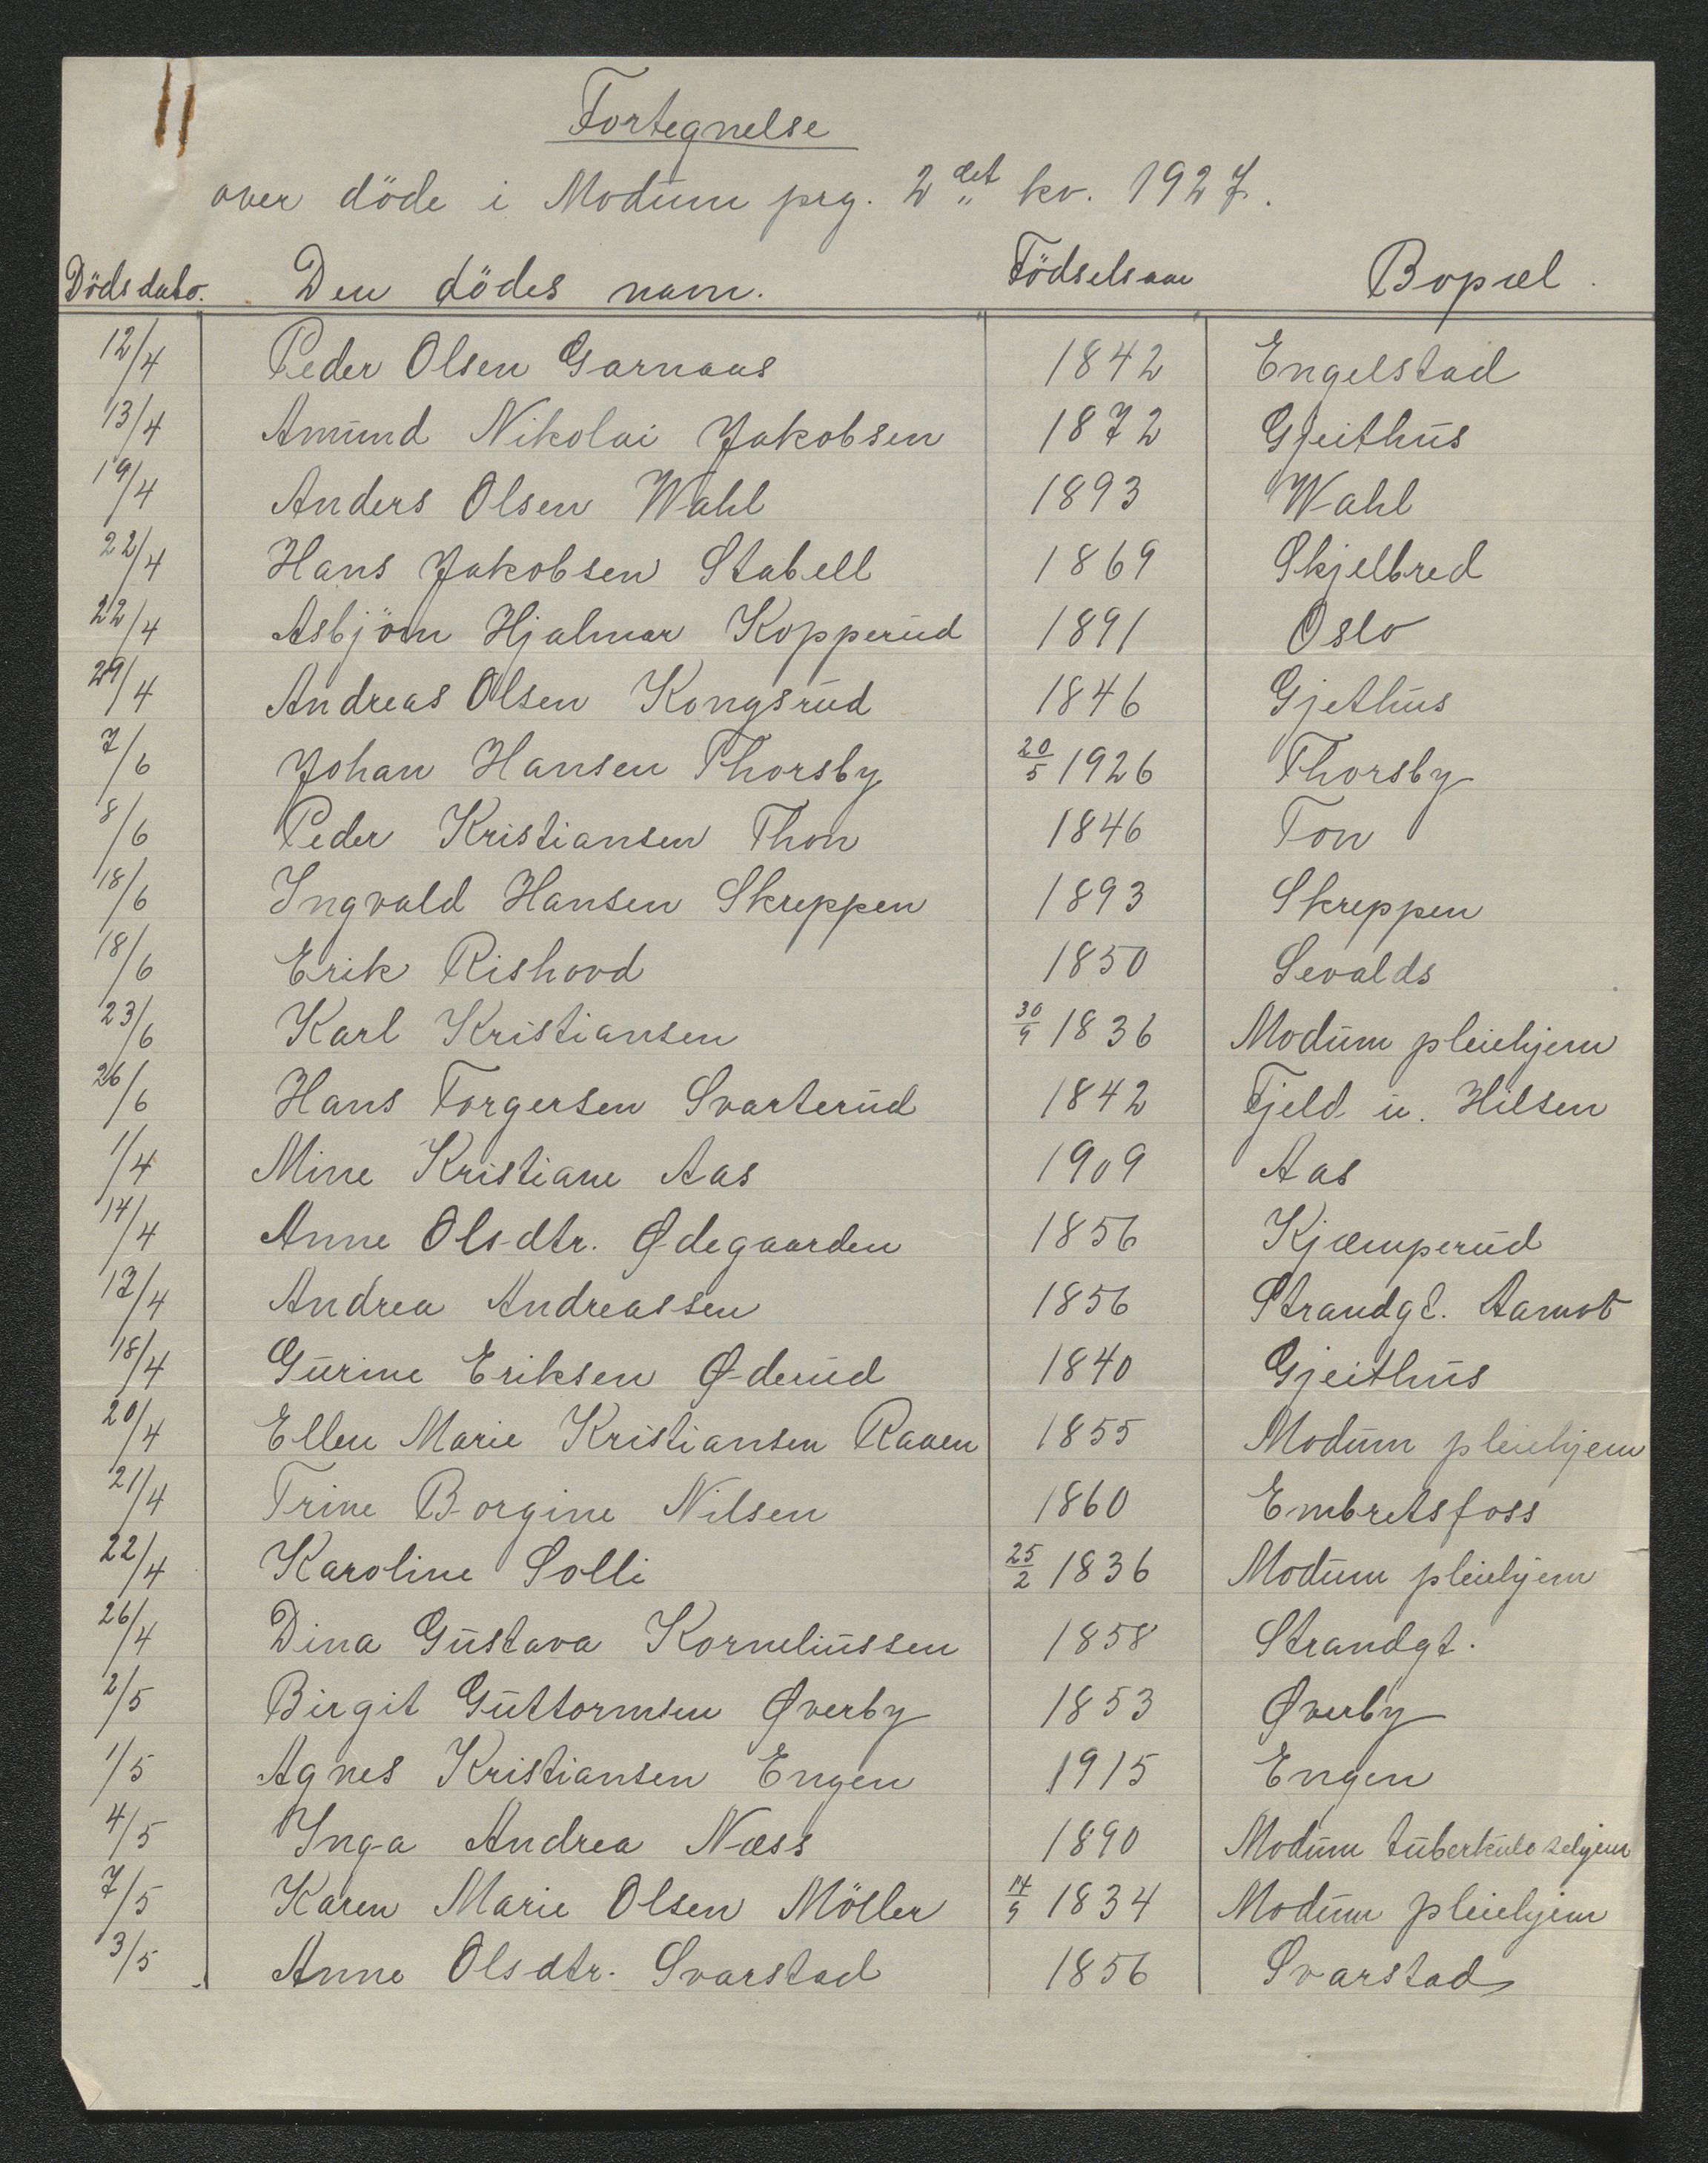 Fortegnelse
over döde i Modum prg. 2det kv. 1927.
Dödsdato. Den dödes navn. Födselsaar Bopæl.
12/4 Peder Olsen Garnaas 1842 Engelstad
13/4 Amund Nikolai Jakobsen 1872 Gjeithus
19/4 Anders Olsen Wahl 1893 Wahl
22/4 Hans Jakobsen Stabell 1869 Skjelbred
22/4 Asbjörn Hjalmar Kopperud 1891 Oslo
29/4 Andreas Olsen Kongsrud 1846 Gjethus
7/6 Johan Hansen Thorsby 20/5 1926 Thorsby
8/6 Peder Kristiansen Thon 1846 Ton
18/6 Ingvald Hansen Skreppen 1893 Skreppen
18/6 Erik Rishovd 1850 Sevalds
23/6 Karl Kristiansen 30/9 1836 Modum pleiehjem
26/6 Hans Torgersen Svarterud 1842 Fjeld u. Hilsen
1/4 Mine Kristiane Aas 1909 Aas
14/4 Anne Olsdtr. Ødegaarden 1856 Kjæmperud
12/4 Andrea Andreassen 1856 Strandgt. Aamot
18/4 Gurine Eriksen Øderud 1840 Gjeithus
20/4 Ellen Marie Kristiansen Raaen 1855 Modum pleiehjem
21/4 Trine Borgine Nilsen 1860 Embretsfoss
22/4 Karoline Solli 25/2 1836 Modum pleiehjem
26/4 Dina Gustava Korneliussen 1858 Strandgt.
2/5 Birgit Guttormsen Øverby 1853 Øverby
1/5 Agnes Kristiansen Engen 1915 Engen
4/5 Inga Andrea Næss 1890 Modum tuberkulosehjem
7/5 Karen Marie Olsen Möller 14/9 1834 Modum pleiehjem
3/5 Anne Olsdtr. Svarstad 1856 Svarstad